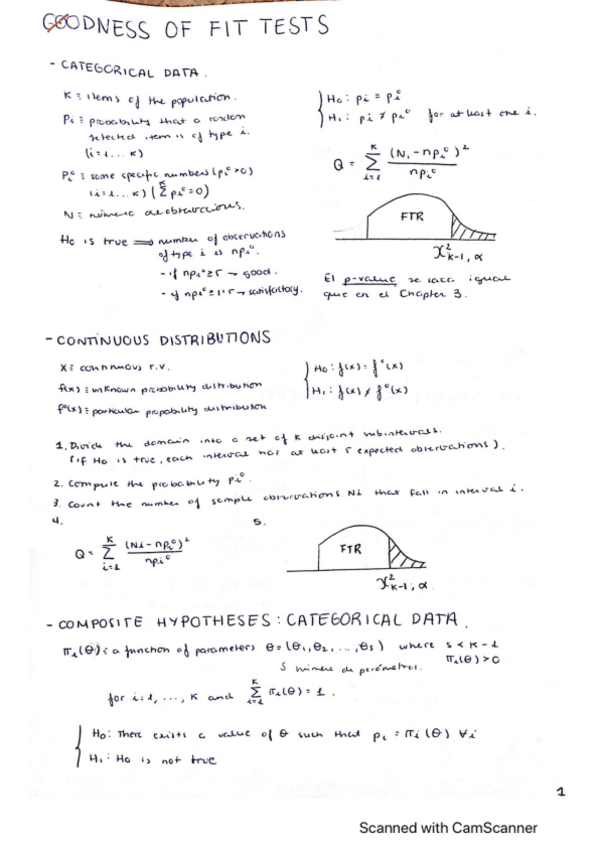 GOODNESS OF FIT TESTS
- CATEGORICAL DATA.
K ≡ items of the population.
Pi ≡ probability that a random
selected item is of type i.
(i=1...K)
Pi° ≡ some specific numbers (pi°>0)
(i=1...K) (Σ pi°=0)
N ≡
Ho is true ⟹ number of observations
of type i is npi°.
- if npi°≥5 → good.
- if npi°≥1'5 → satisfactory.
Ho: pi = pi°
H1: pi ≠ pi° for at least one i.
Q = Σ (Ni - npi°)² / npi°
K
i=1
FTR
X²k-1, α
El p-value se saca igual
que en el Chapter 3.
- CONTINUOUS DISTRIBUTIONS
X ≡ continuous r.v.
f(x) ≡ unknown probability distribution
f°(x) ≡ particular propability distribution
Ho: f(x) = f°(x)
H1: f(x) ≠ f°(x)
1. Divide the domain into a set of K disjoint subintervals.
(if Ho is true, each interval has at least 5 expected observations).
2. Compute the probability pi°.
3. Count the number of sample observations Ni that fall in interval i.
4.
Q = Σ (Ni - npi°)² / npi°
K
i=1
5.
FTR
X²k-1, α
- COMPOSITE HYPOTHESES: CATEGORICAL DATA.
πi(θ): a function of parameters θ=(θ1,θ2,...,θs) where s < K-1
πi(θ)>0
S número de parámetros.
for i=1, ..., K and Σ πi(θ) = 1.
K
i=1
Ho: There exists a value of θ such that pi = πi(θ) ∀i
H1: Ho is not true
1
Scanned with CamScanner